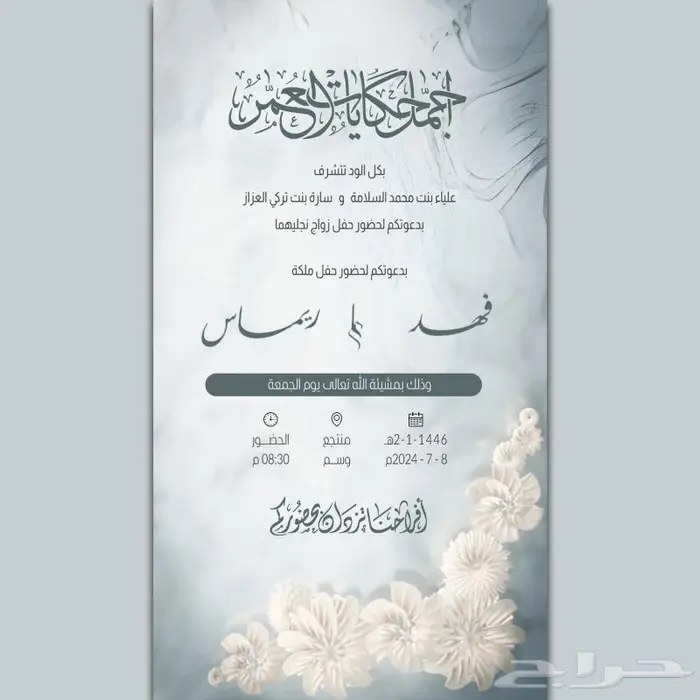 اجمل حكايات العمر
بكل الود تتشرف
علياء بنت محمد السلامة و سارة بنت تركي العزاز
بدعوتكم لحضور حفل زواج نجليهما
بدعوتكم لحضور حفل ملكة
فهد & ريماس
وذلك بمشيئة الله تعالى يوم الجمعة
1446-1-2هـ منتجع الحضـــور
8 - 7 - 2024م وســم 08:30 م
أفراحنا تزدان بحضوركم
حراج